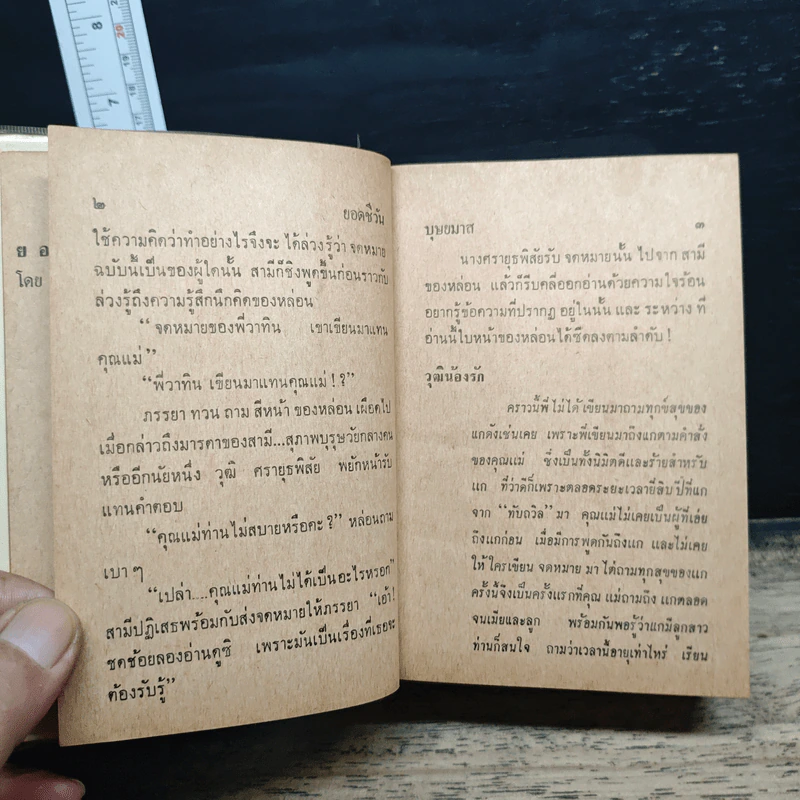 8
20
19
18
7
17
ย อ
โดย
๒ ยอดชีวัน
ใช้ความคิดว่าทำอย่างไรจึงจะ ได้ล่วงรู้ว่า จดหมาย
ฉบับนี้เป็นของผู้ใดนั้น สามีก็ชิงพูดขึ้นก่อนราวกับ
ล่วงรู้ถึงความรู้สึกนึกคิดของหล่อน
“จดหมายของพี่วาทิน เขาเขียนมาแทน
คุณแม่”
“พี่วาทิน เขียนมาแทนคุณแม่ ! ?”
ภรรยา ทวน ถาม สีหน้า ของหล่อน เผือดไป
เมื่อกล่าวถึงมารดาของสามี...สุภาพบุรุษวัยกลางคน
หรืออีกนัยหนึ่ง วุฒิ ศรายุธพิสัย พยักหน้ารับ
แทนคำตอบ
“คุณแม่ท่านไม่สบายหรือคะ ?” หล่อนถาม
เบา ๆ
“เปล่า....คุณแม่ท่านไม่ได้เป็นอะไรหรอก”
สามีปฏิเสธพร้อมกับส่งจดหมายให้ภรรยา “เอ้า !
ชดช้อยลองอ่านดูซิ เพราะมันเป็นเรื่องที่เธอจะ
ต้องรับรู้”
บุษยมาส ๓
นางศรายุธพิสัยรับ จดหมายนั้น ไปจาก สามี
ของหล่อน แล้วก็รีบคลี่ออกอ่านด้วยความใจร้อน
อยากรู้ข้อความที่ปรากฏ อยู่ในนั้น และ ระหว่าง ที่
อ่านนี้ใบหน้าของหล่อนได้ซีดลงตามลำดับ !
วุฒิน้องรัก
คราวนี้พี่ ไม่ได้ เขียนมาถามทุกข์สุขของ
แกดังเช่นเคย เพราะพี่เขียนมาถึงแกตามคำสั่ง
ของคุณแม่ ซึ่งเป็นทั้งนิมิตดีและร้ายสำหรับ
แก ที่ว่าดีก็เพราะตลอดระยะเวลายี่สิบปีที่แก
จาก “ทับถวิล” มา คุณแม่ไม่เคยเป็นผู้ที่เอ่ย
ถึงแกก่อน เมื่อมีการพูดกันถึงแก และไม่เคย
ให้ ใครเขียน จดหมาย มา ไต่ถามทุกสุขของแก
ครั้งนี้จึงเป็นครั้งแรกที่คุณ แม่ถามถึง แกตลอด
จนเมียและลูก พร้อมกันพอรู้ว่าแกมีลูกสาว
ท่านก็สนใจ ถามว่าเวลานี้อายุเท่าไหร่ เรียน